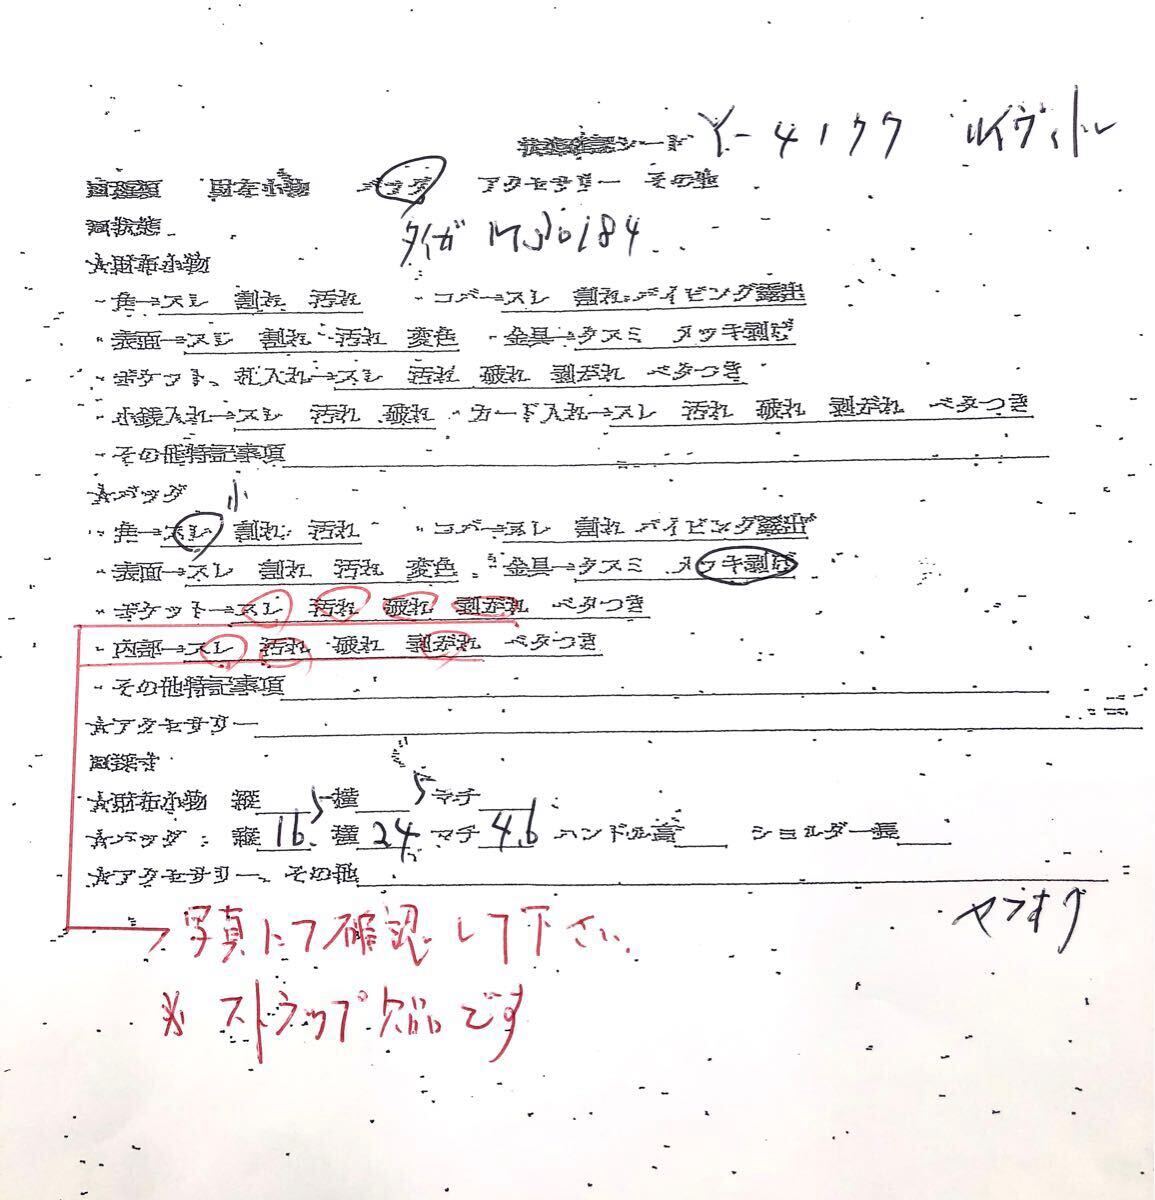 状態確認シード Y-4177 ルイヴィトン
財布小物 バッグ アクセサリー その他
状態 タイガ M30184
★財布小物
・角→スレ 割れ 汚れ ・コバ→スレ 割れ パイピング露出
・表面→スレ 割れ 汚れ 変色 ・金具→クスミ メッキ剥げ
・ポケット、札入れ→スレ 汚れ 破れ 剥がれ ベタつき
・小銭入れ→スレ 汚れ 破れ ・カード入れ→スレ 汚れ 破れ 剥がれ ベタつき
・その他特記事項
★バッグ 小
・角→スレ 割れ 汚れ ・コバ→スレ 割れ パイピング露出
・表面→スレ 割れ 汚れ 変色 ・金具→クスミ メッキ剥げ
・ポケット→スレ 汚れ 破れ 剥がれ ベタつき
・内部→スレ 汚れ 破れ 剥がれ ベタつき
・その他特記事項
★アクセサリー
採寸
★財布小物 縦 横 マチ
★バッグ 縦 16 横 24 マチ 4.6 ハンドル高 ショルダー長
★アクセサリー、その他
ヤフオク
写真にて確認して下さい。
※ ストラップ欠品です